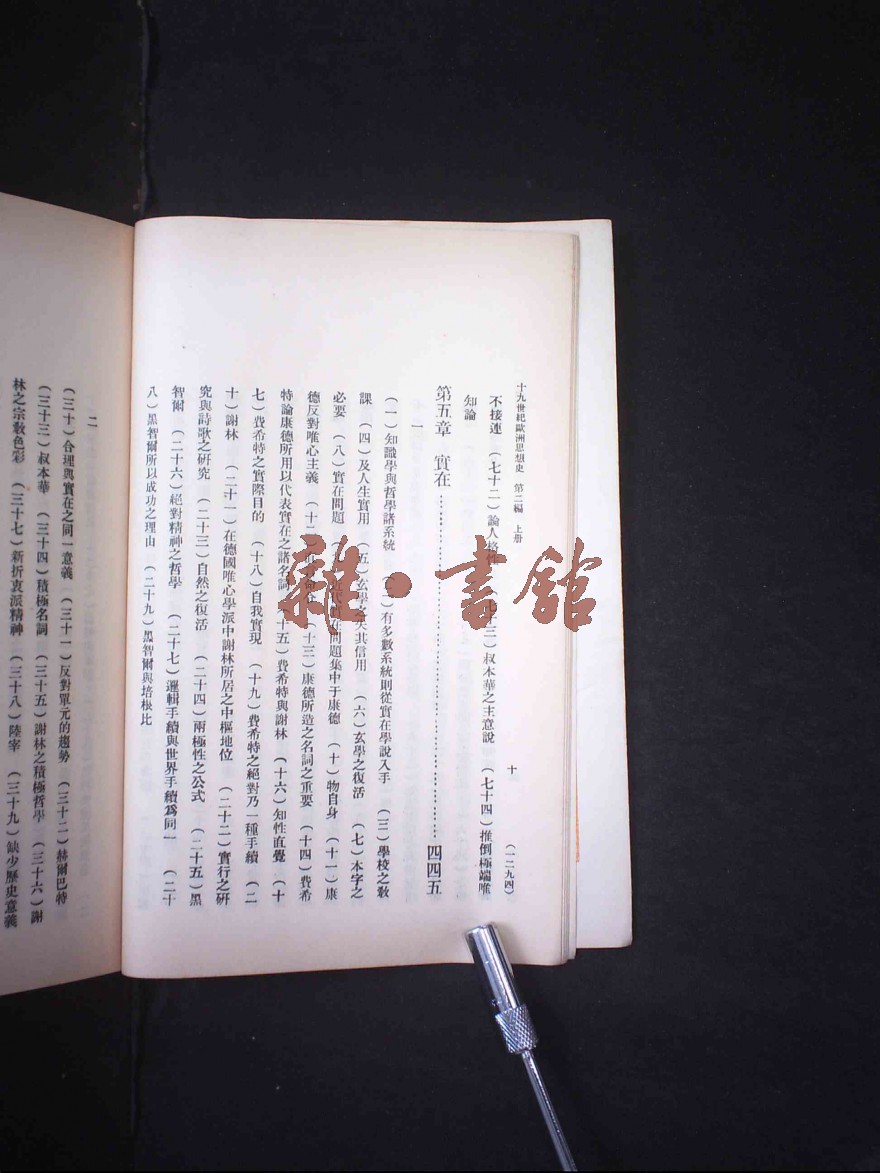 十九世紀歐洲思想史　第二編　上册　十　（一二九四）
不接連　（七十二）論人格性　（七十三）叔本華之主意說　（七十四）推倒極端唯
知論
第五章　實在……四四五
一
（一）知識學與哲學諸系統　（二）有多數系統則從實在學說入手　（三）學校之敎
課　（四）及人生實用　（五）玄學之失其信用　（六）玄學之復活　（七）本字之
必要　（八）實在問題　近代實在問題集中于康德　（十）物自身　（十一）康
德反對唯心主義　（十二）　（十三）康德所造之名詞之重要　（十四）費希
特論康德所用以代表實在之諸名詞　（十五）費希特與謝林　（十六）知性直覺　（十
七）費希特之實際目的　（十八）自我實現　（十九）費希特之絕對乃一種手續　（二
十）謝林　（二十一）在德國唯心學派中謝林所居之中樞地位　（二十二）實行之研
究與詩歌之研究　（二十三）自然之復活　（二十四）兩極性之公式　（二十五）黑
智爾　（二十六）絕對精神之哲學　（二十七）邏輯手續與世界手續爲同一　（二十
八）黑智爾所以成功之理由　（二十九）黑智爾與培根比
二
（三十）合理與實在之同一意義　（三十一）反對單元的趨勢　（三十二）赫爾巴特
（三十三）叔本華　（三十四）積極名詞　（三十五）謝林之積極哲學　（三十六）謝
林之宗敎色彩　（三十七）新折衷派精神　（三十八）陸宰　（三十九）缺少歷史意義
雜·書館